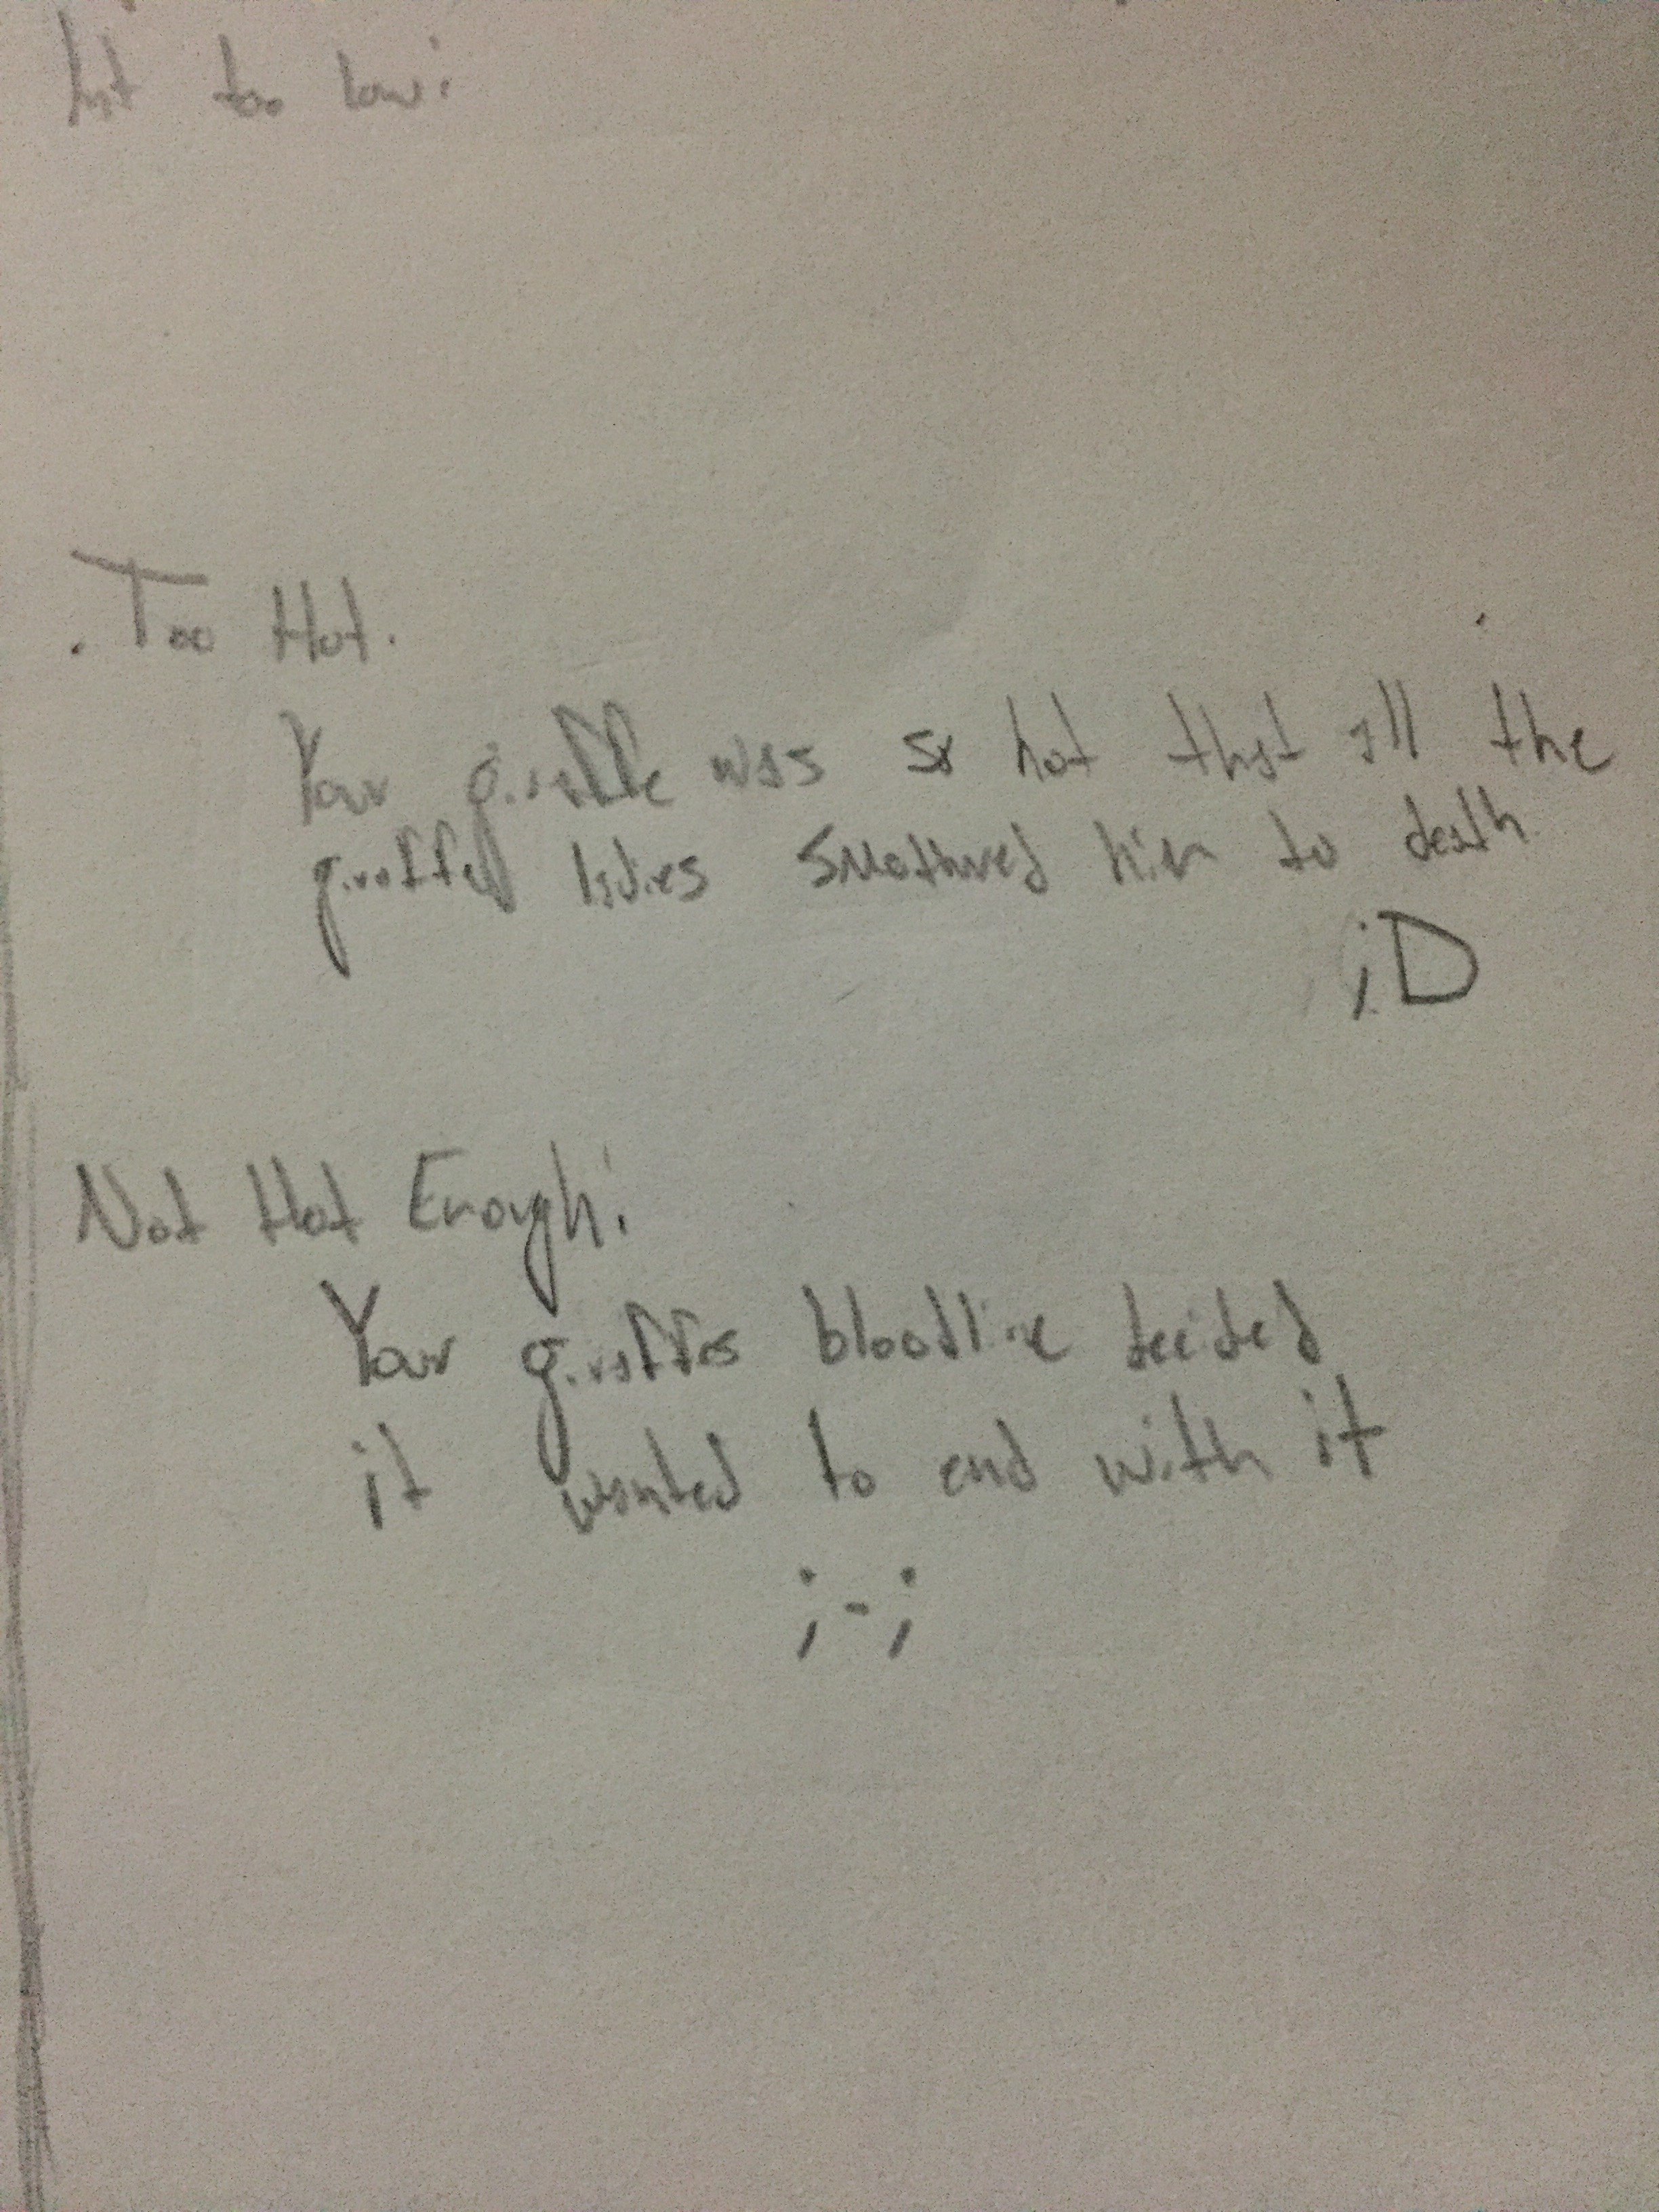 Int too low:
. Too Hot.
Your giraffe was so hot that all the
giraffe ladies smothured him to death
;D
Not Hot Enough:
Your giraffes bloodline decided
it wanted to end with it
;-;